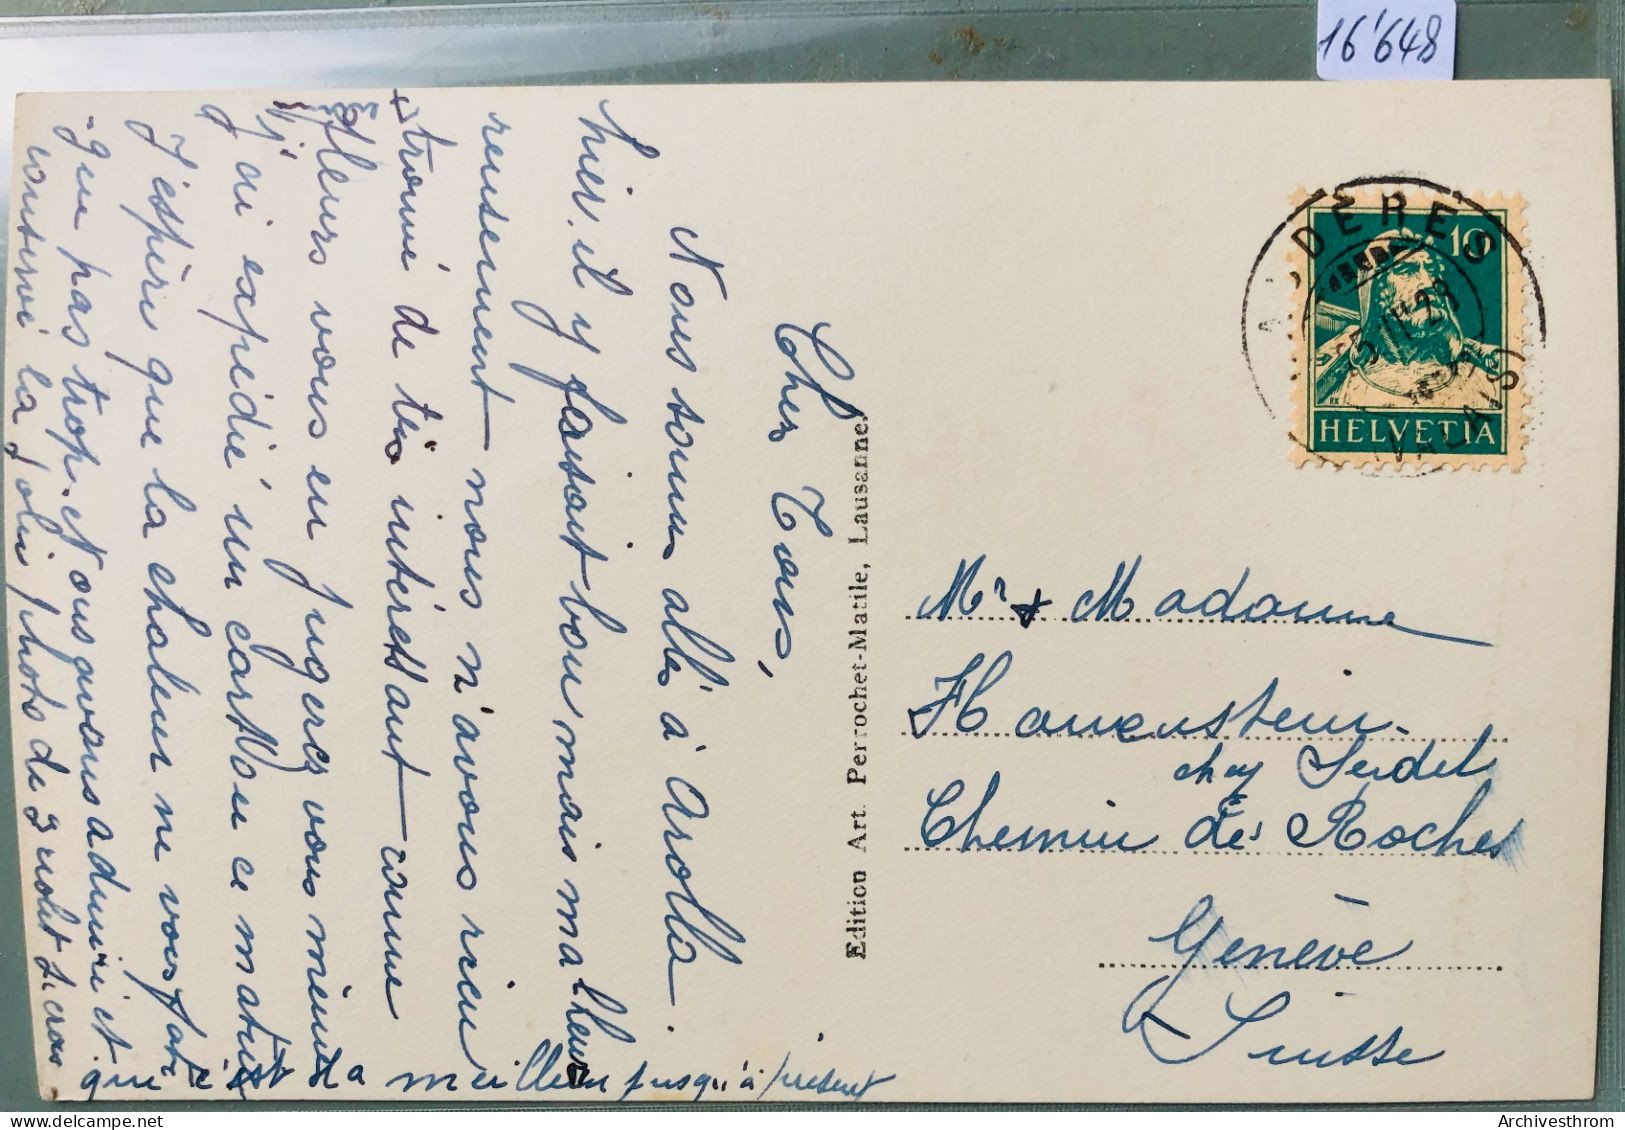 16'648
Cher Tous,
Nous somm allé à Arolla.
hier. il y faisait bon mais malheu
reusement nous n'avons rien
trouvé de très intéressant comme
fleurs vous en jugerez vous même
j'ai expédié un carton ce matin
J'espère que la chaleur ne vous fati
-gue pas trop. Nous avons admiré et
conservé la jolie photo de
qui c'est la meilleur jusqu'à présent
Edition Art. Perrochet-Matile, Lausanne.
10
HELVETIA
DÈRES
(VALAIS)
Mr & Madame
Hauenstein.
chez
Chemin des Roches
Genève
Suisse
Archivesthrom